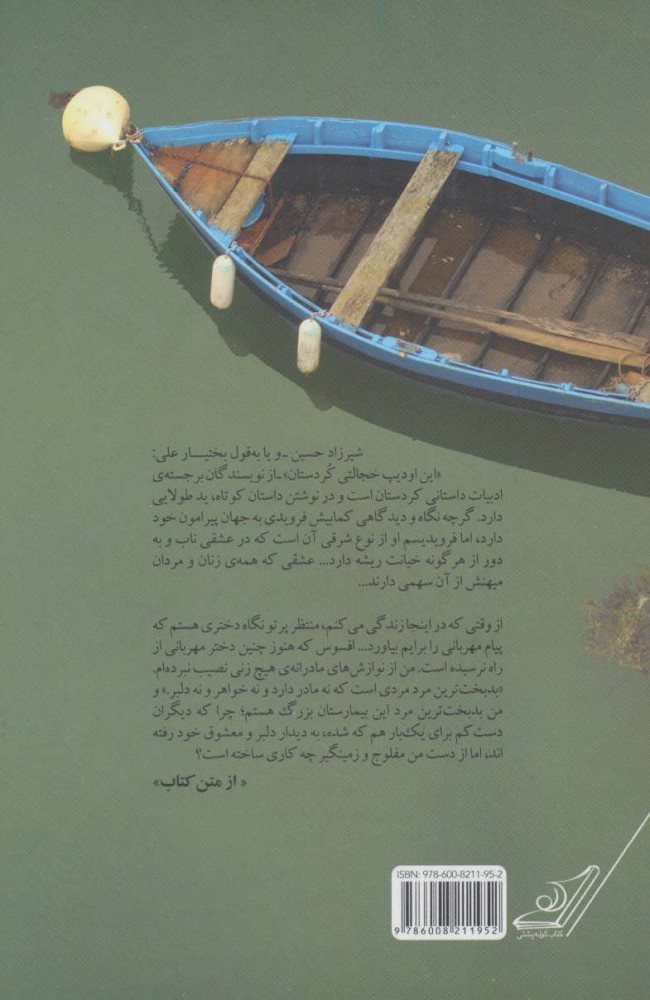 شیرزاد حسین ـ و یا به‌قول بختیـــار علی:
«این اودیپ خجالتی کُردستان» ـ از نویسندگان برجسته‌ی
ادبیات داستانی کردستان است و در نوشتن داستان کوتاه، ید طولایی
دارد. گرچه نگاه و دیدگاهی کمابیش فرویدی به جهان پیرامون خود
دارد، اما فرویدیسم او از نوع شرقی آن است که در عشقی ناب و به
دور از هرگونه خیانت ریشه دارد... عشقی که همه‌ی زنان و مردان
میهنش از آن سهمی دارند...
از وقتی که در اینجا زندگی می‌کنم، منتظر پرتو نگاه دختری هستم که
پیام مهربانی را برایم بیاورد... افسوس که هنوز چنین دختر مهربانی از
راه نرسیده است. من از نوازش‌های مادرانه‌ی هیچ زنی نصیب نبرده‌ام.
«بدبخت‌ترین مرد مردی است که نه مادر دارد و نه خواهر و نه دلبر.» و
من بدبخت‌ترین مرد این بیمارستان بزرگ هستم؛ چرا که دیگران
دست کم برای یک‌بار هم که شده، به دیدار دلبر و معشوق خود رفته
اند، اما از دست من مفلوج و زمینگیر چه کاری ساخته است؟
« از متن کتاب»
ISBN: 978-600-8211-95-2
9 786008 211952
کتاب کوله‌پشتی